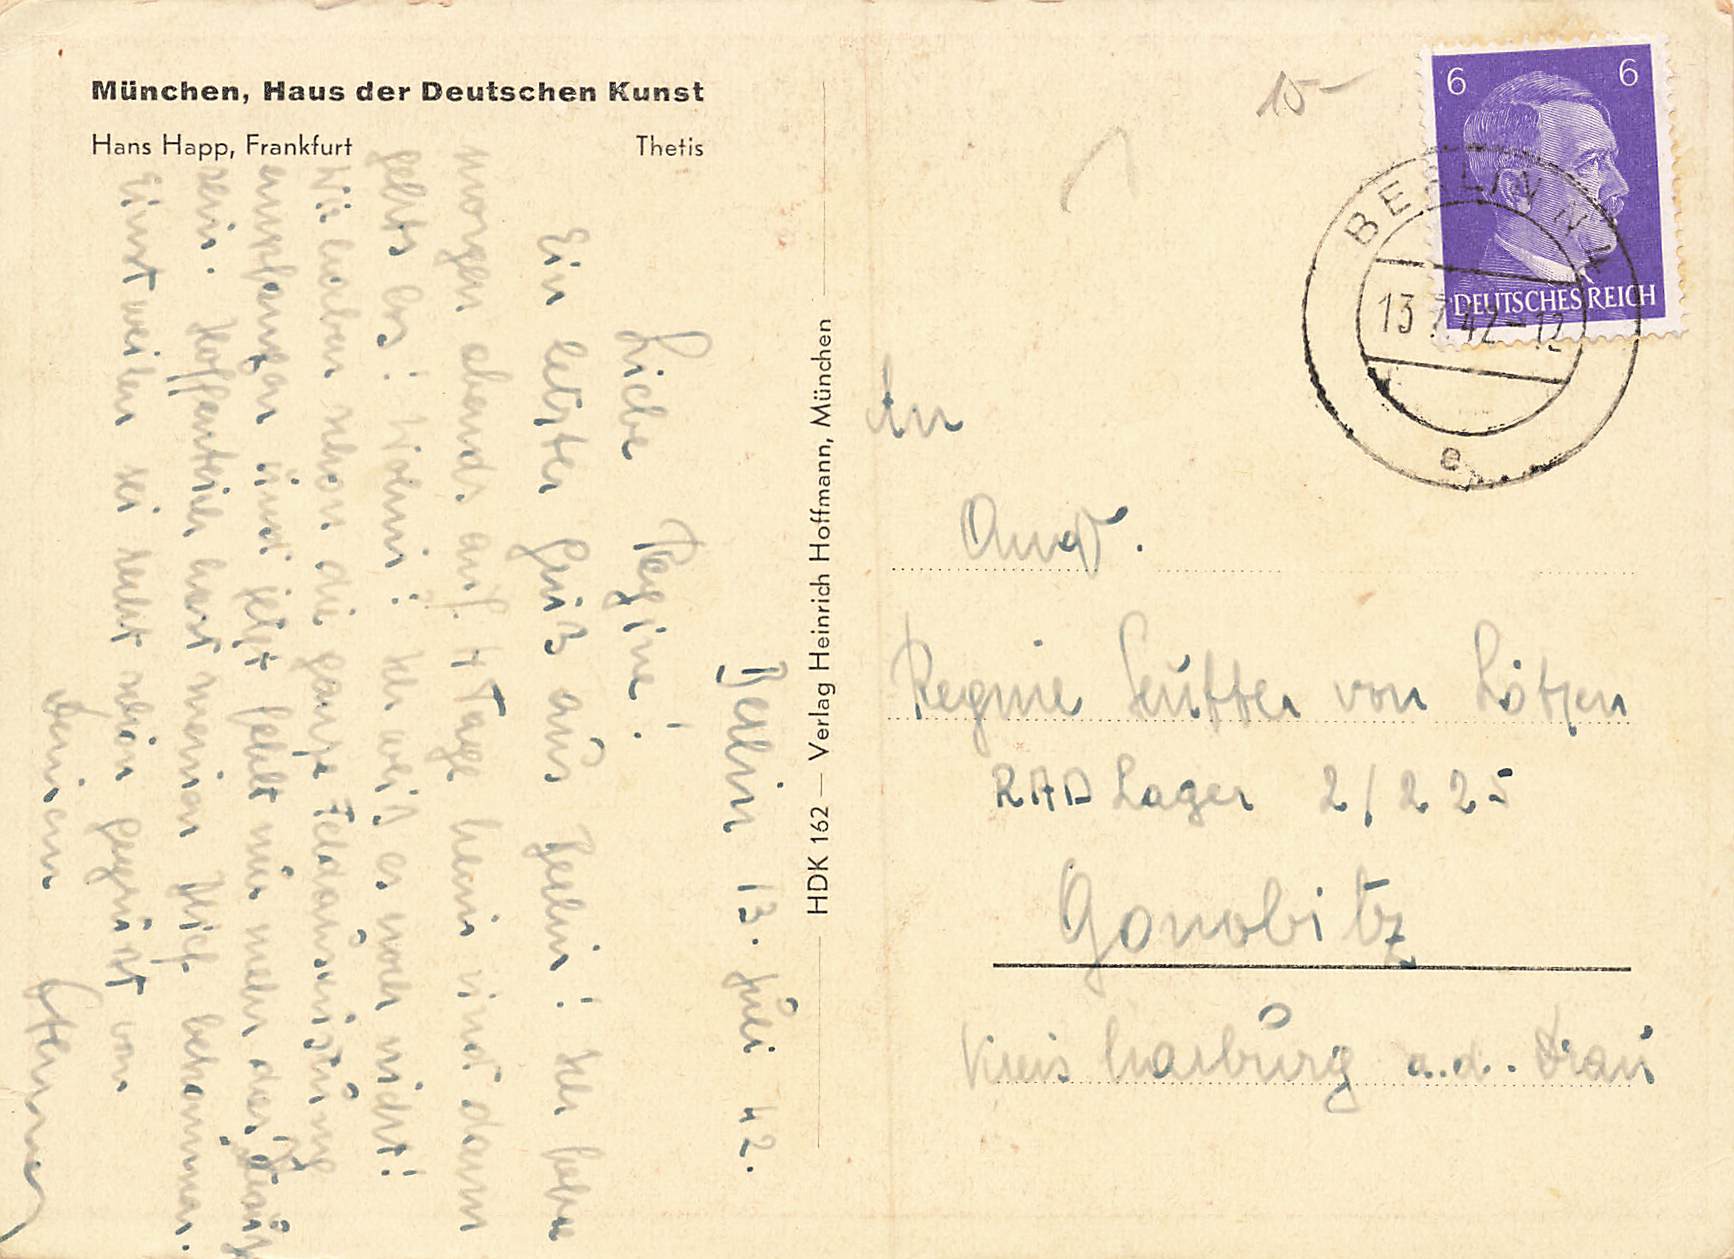 München, Haus der Deutschen Kunst
Hans Happ, Frankfurt Thetis
Berlin 13. Juli 42.
Liebe Regine!
Ein letzter Gruß aus Berlin! Ich fahre
morgen abends auf 4 Tage heim und dann
gehts los! Wohin? Ich weiß es noch nicht!
Wir haben schon die ganze Feldausrüstung
empfangen und jetzt fehlt nur mehr der
sein. Hoffentlich hast meinen bekommen.
Einstweilen sei recht schön gegrüßt von
Deinem
HDK 162 — Verlag Heinrich Hoffmann, München
15-
6 6
DEUTSCHES REICH
BERLIN N 4
13.7.42-12
e
An
Regine von
RAD Lager 2/225
Gonobitz
Kreis Marburg a.d. Drau